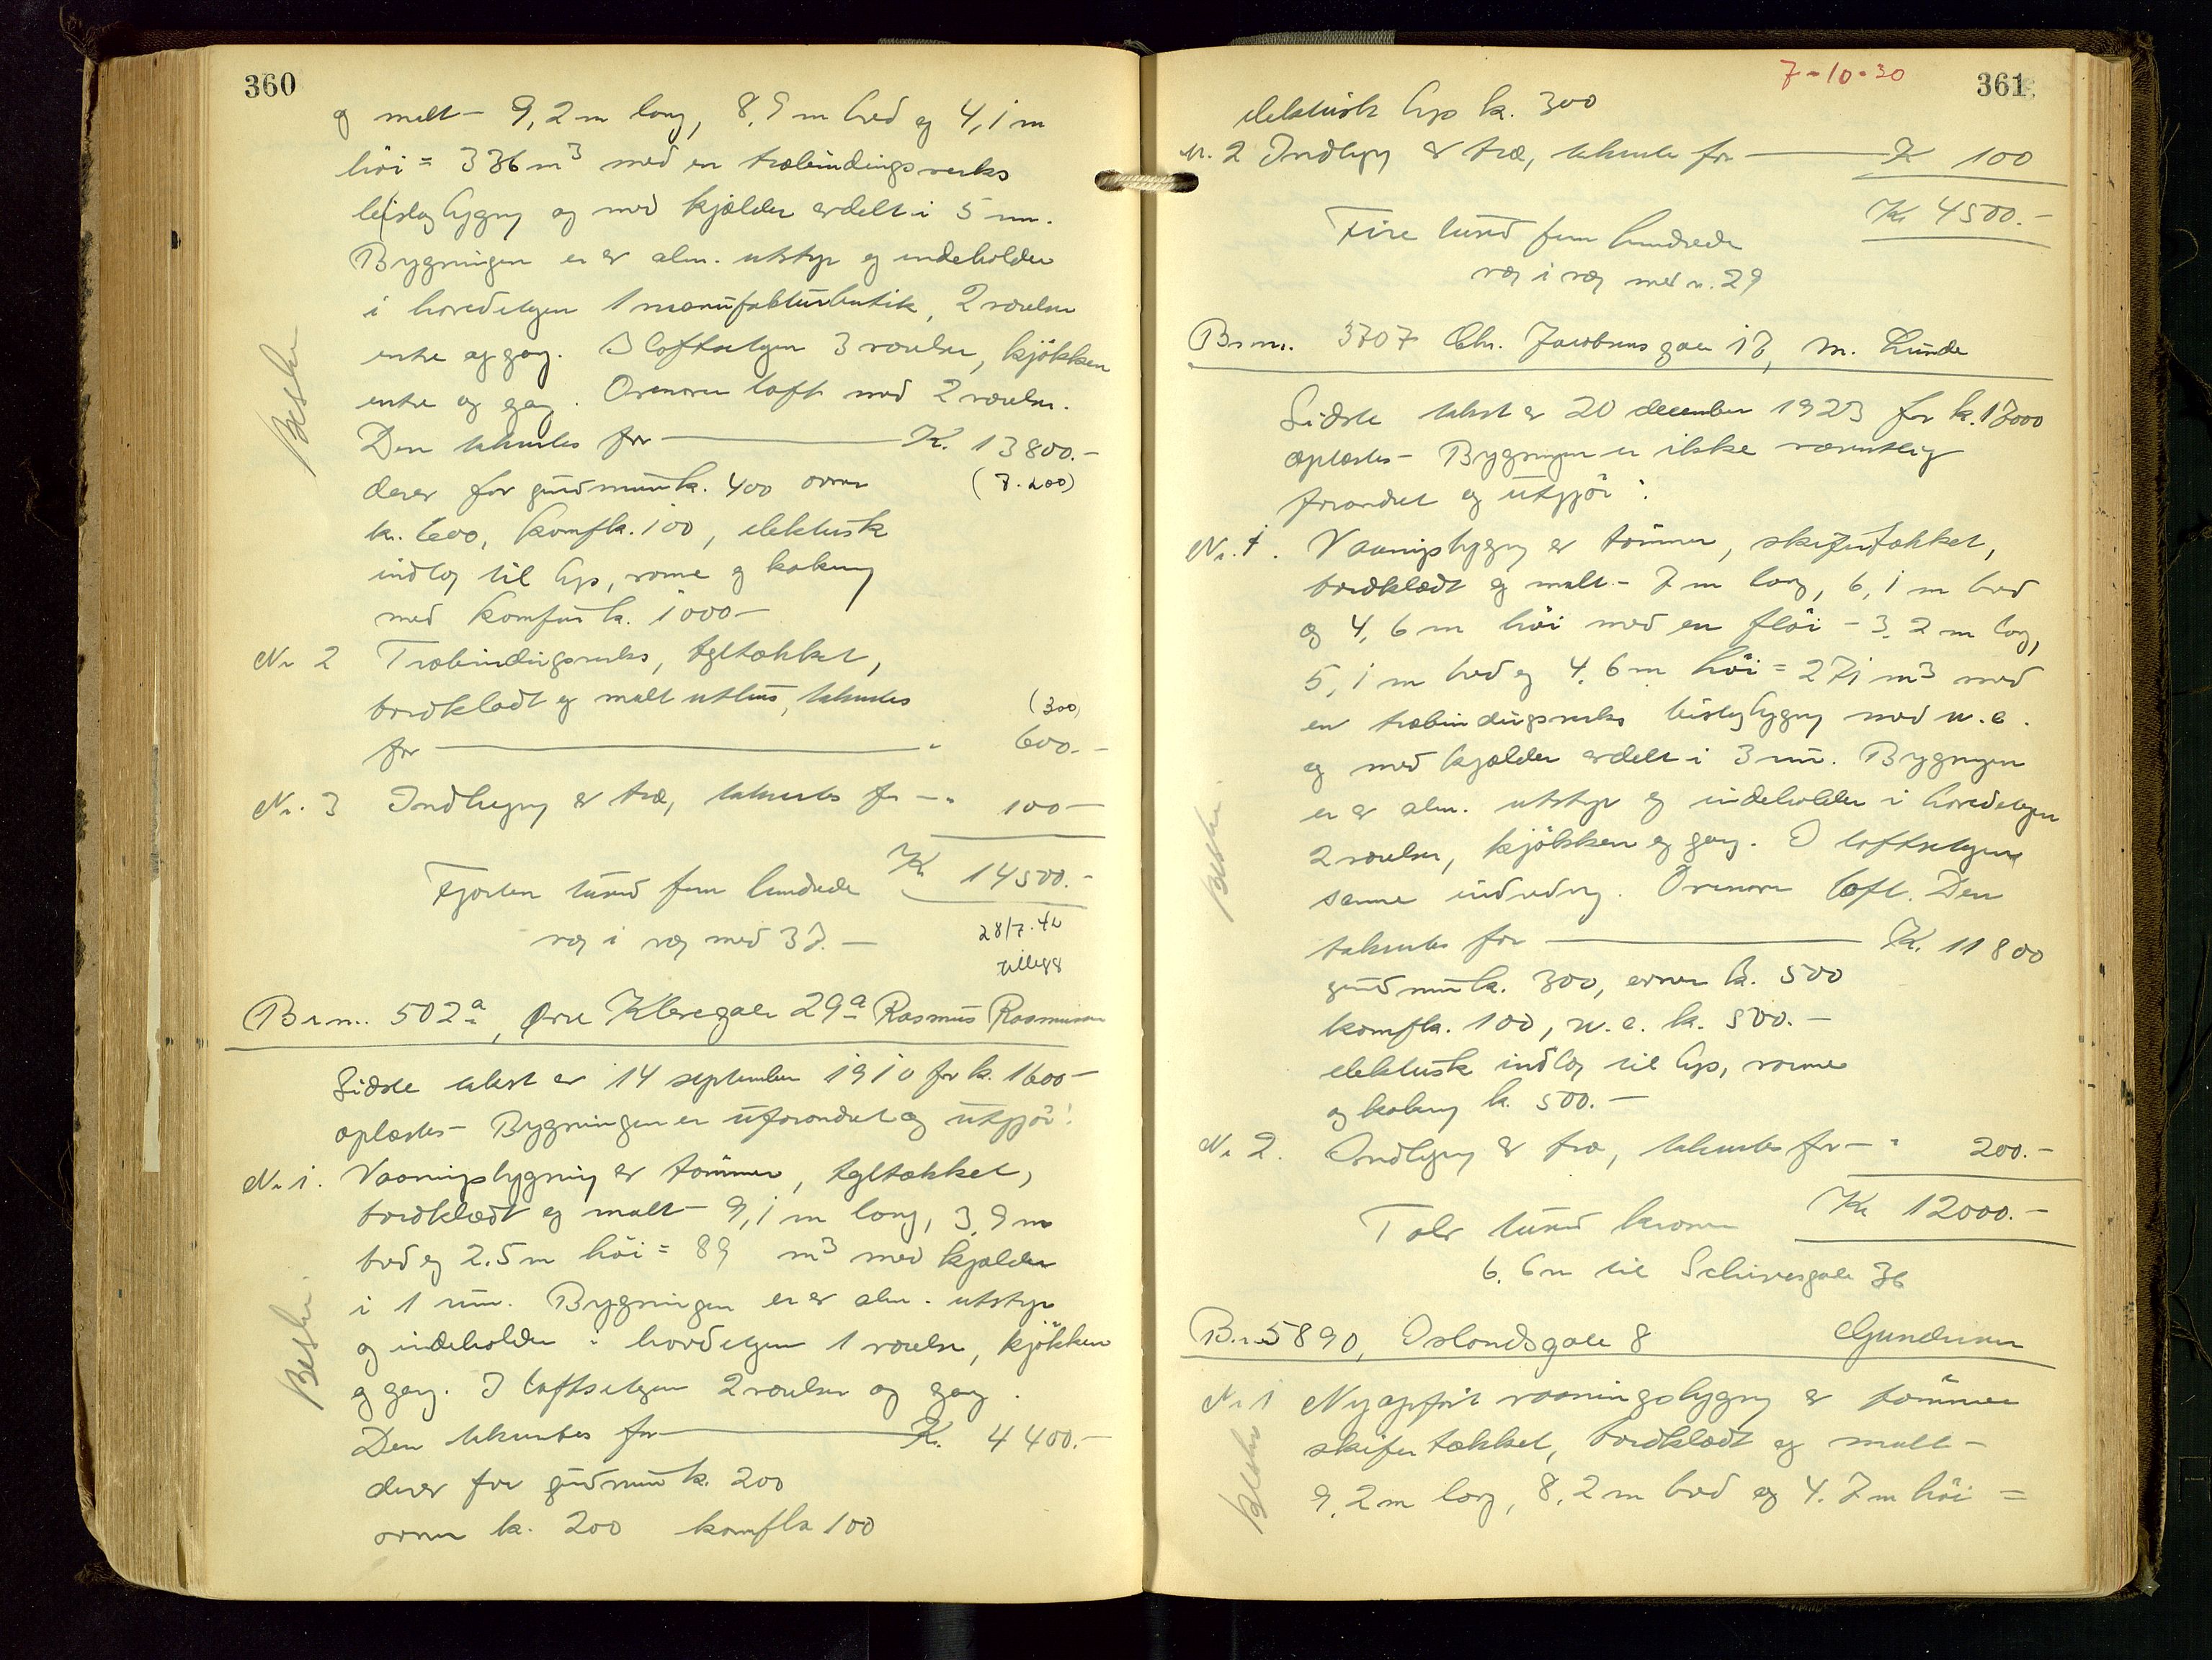 360
og malt - 9,2 m lang, 8,9 m bred og 4,1 m
höi = 336 m³ med en træbindingsverks
bislagbygng og med kjælder avdelt i 5 rum.
Bygningen er av alm. utstyr og indeholder
i hovedetagen 1 manufakturbutik, 2 værelser
entre og gang. I loftsetagen 3 værelser, kjökken
entre og gang. Ovenover loft med 2 værelser.
Besku
Den takseres for — K. 13800.-
derav for grundmur k. 400 ovner (7.200)
k. 600, komf k. 100, elektrisk
indlag til lys, varme og kokning
med komfur k. 1000 -
Nr 2 Træbindingsverks, tgltækket,
bordklædt og malt uthus, takseres (300)
for — " 600.-
Nr. 3 Indhegng av træ, takseres for - " 100 -
Kr 14500.-
Fjorten tusind fem hundrede
væg i væg med 37. -
28/7.42
tillegg
Br.nr. 502a, Øvre Klevegate 29a Rasmus Rasmussen
Sidste takst av 14 september 1910 for k. 1600 -
oplæstes - Bygningen er uforandret og utgjör:
Nr 1. Vaaningsbygning av tömmer, tgltækket,
bordklædt og malt - 9,1 m lang, 3,9 m
bred og 2.5 m höi = 89 m³ med kjælder
i 1 rum. Bygningen er av alm. utstyr
og indeholder i hovedetagen 1 værelse, kjökken
og gang. I loftsetagen 2 værelser og gang.
Besku.
Den takseres for — K. 4400.-
derav for grundmur k. 200
ovner k. 200 komf k 100
7-10-30
361
elektrisk lys k. 300
Nr. 2 Indhegng av træ, takseres for — K 100
Kr 4500.-
Fire tusind fem hundrede
væg i væg med n. 29
Br.nr. 3707 Chr. Jacobsens gate 17, M. Lunde
Sidste takst av 20 december 1923 for k. 13000
oplæstes - Bygningen er ikke væsentlig
forandret og utgjör:
Nr. 1. Vaaningsbygng av tömmer, skifertækket,
bordklædt og malt - 7 m lang, 6,1 m bred
og 4,6 m höi med en flöi - 3,2 m lang,
5,1 m bred og 4,6 m höi = 271 m³ med
en træbindingsverks bislagbygng med w.c.
og med kjælder avdelt i 3 rum. Bygningen
er av alm. utstyr og indeholder i hovedetagen
2 værelser, kjökken og gang. I loftsetagen
samme indredng. Ovenover loft. Den
Besku.
takseres for — K. 11800
grundmur k. 300, ovner k. 500
komf k. 100, w.c. k. 500.-
elektrisk indlag til lys, varme
og kokning k. 500.-
Nr 2. Indhegng av træ, takseres for - " 200.-
Kr 12000.-
Tolv tusind kroner
6,6 m til Schivesgate 36
Br.nr 5890, Oslandsgate 8 Gundersen
Nr 1 Nyopfört vaaningsbygng av tömmer
skifertækket, bordklædt og malt -
9,2 m lang, 8,2 m bred og 4.7 m höi =
Besku